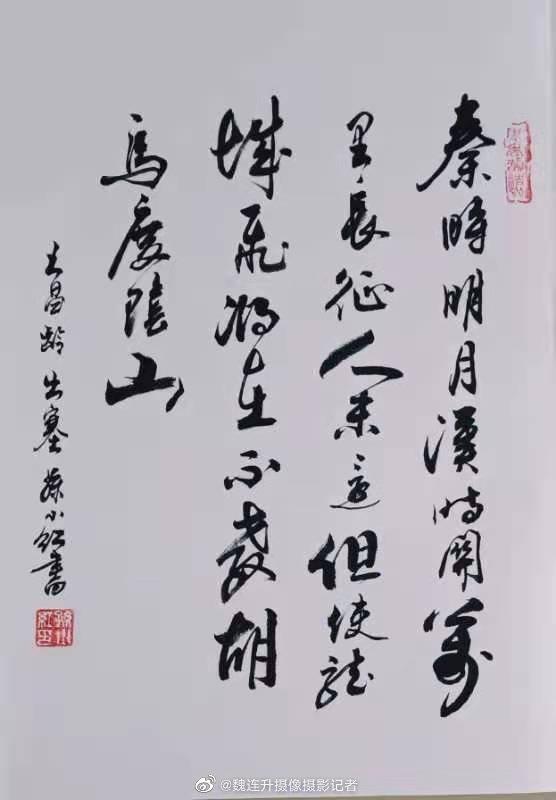 秦時明月漢時關萬
里長征人未還但使龍
城飛將在不教胡
馬度陰山
王昌齡出塞 小红書
@魏连升摄像摄影记者